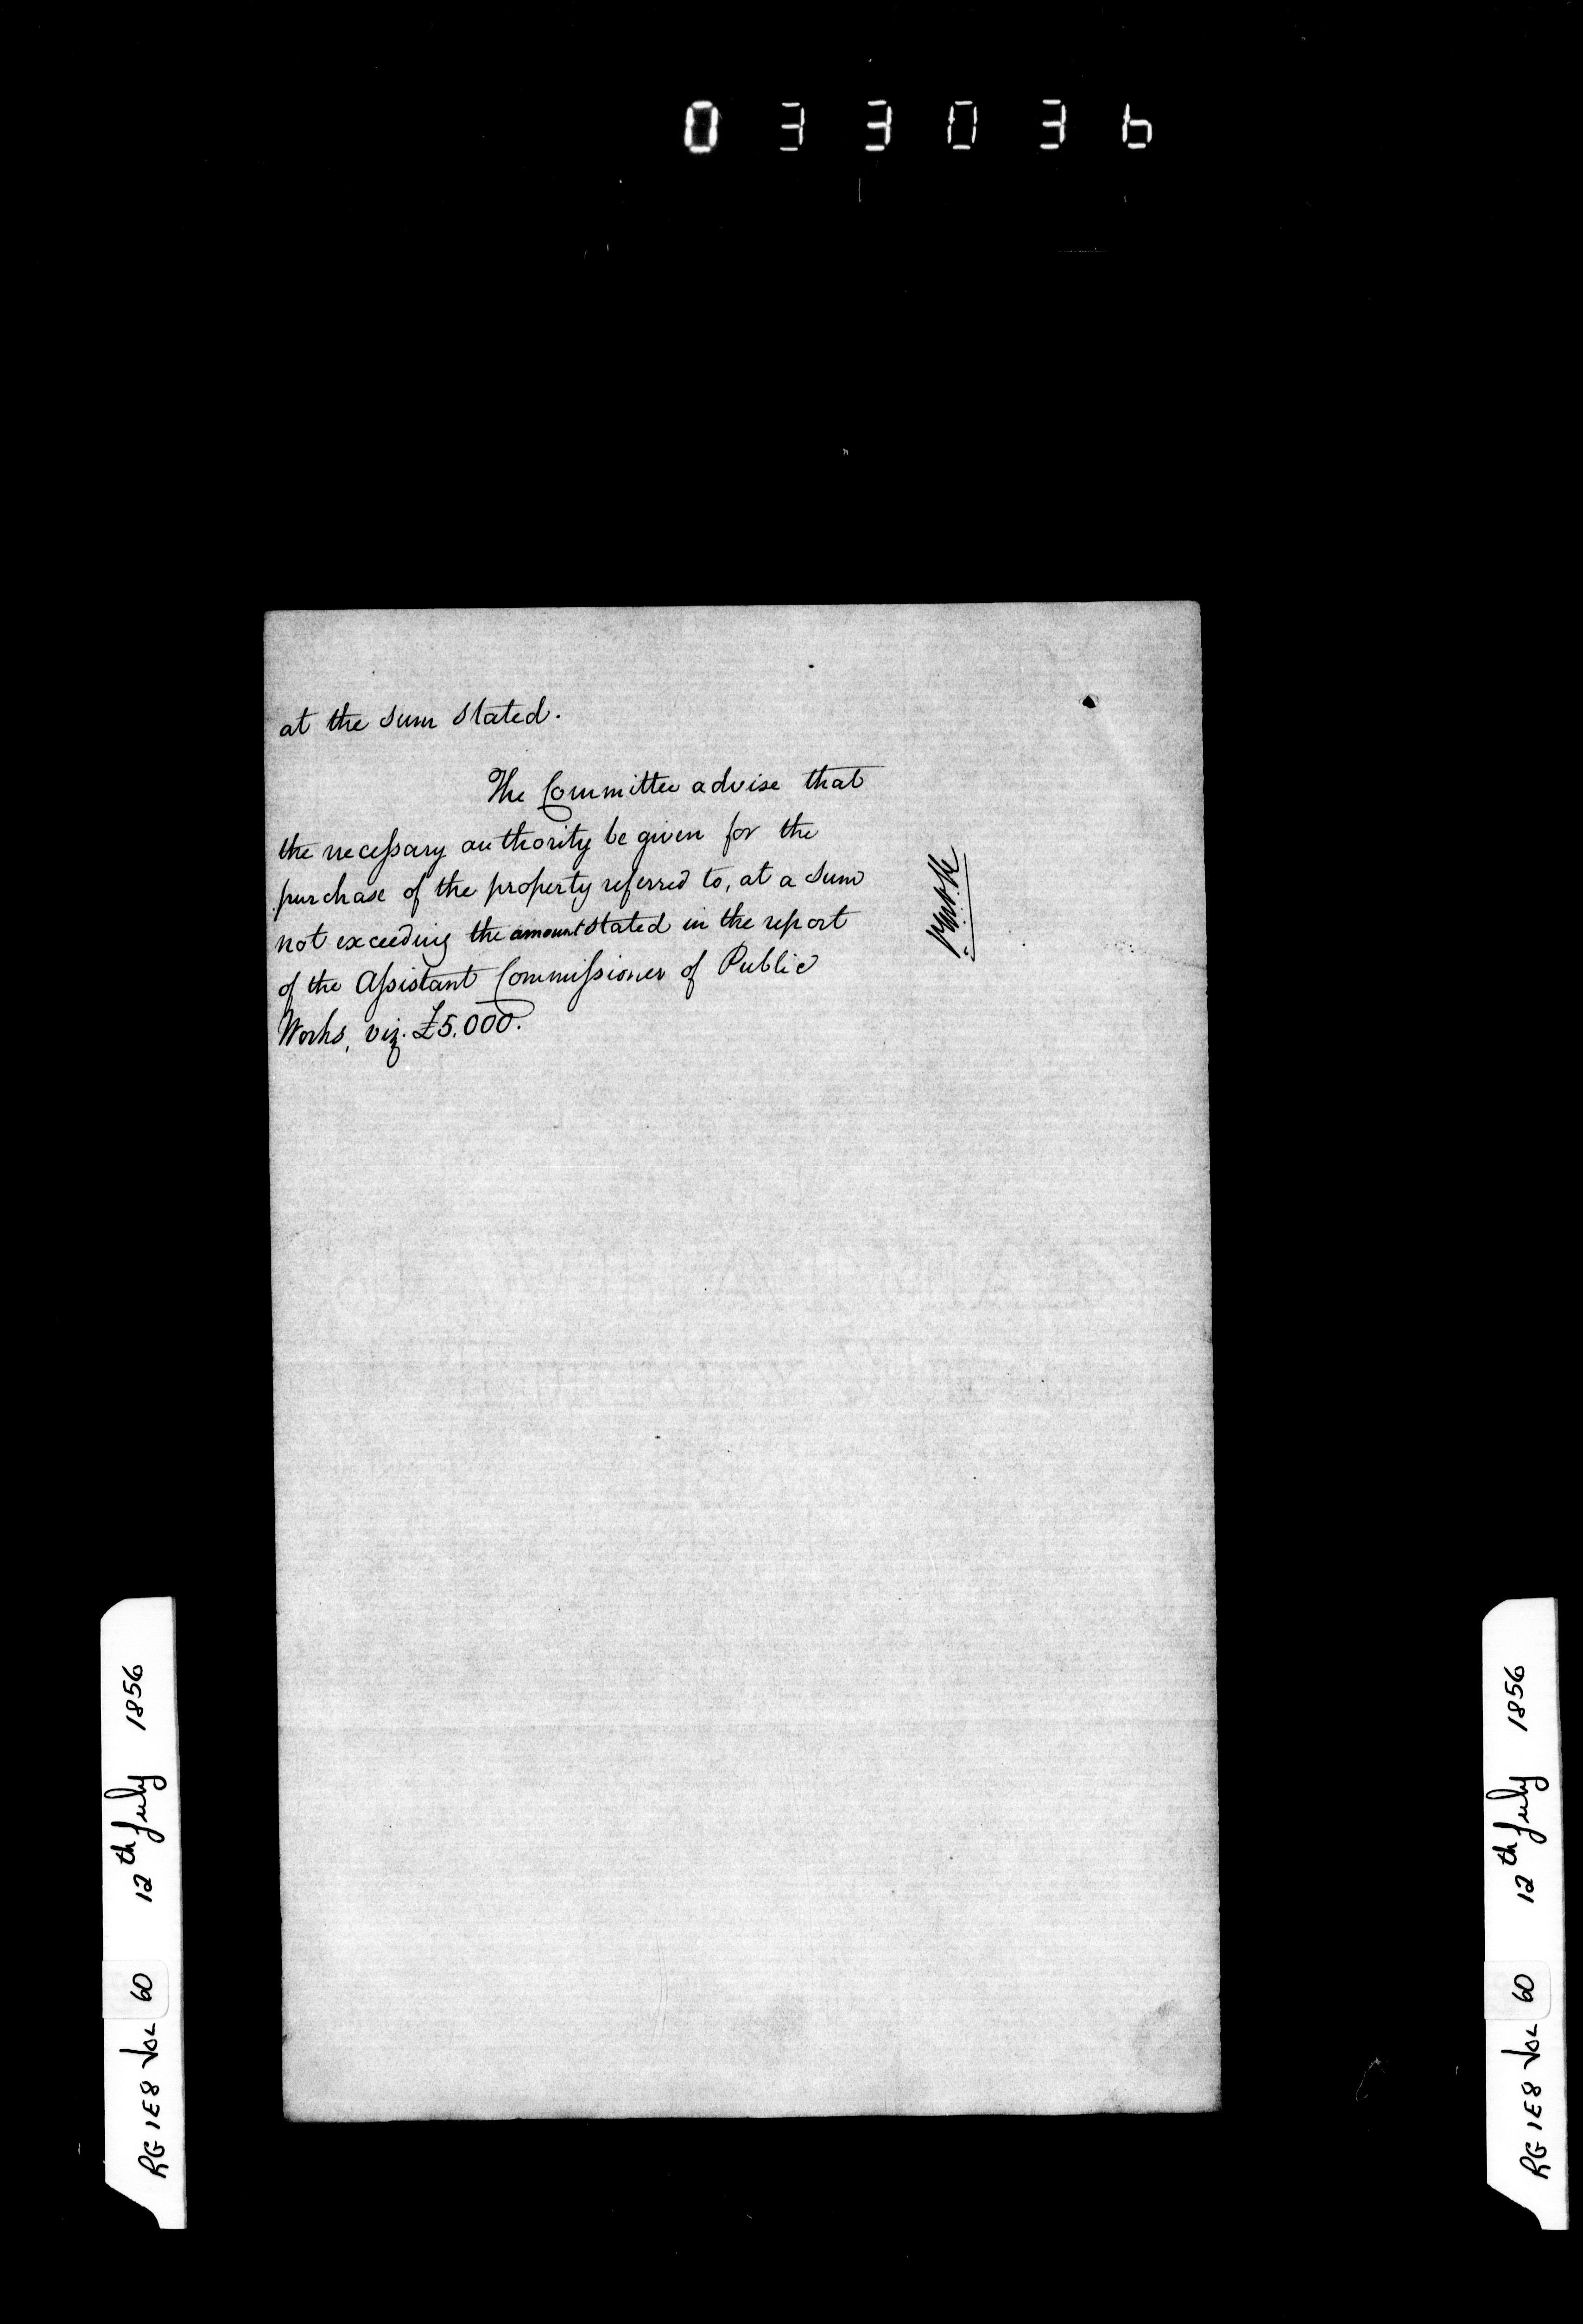 033036
at the sum stated.
The Committee advise that
the necessary authority be given for the
purchase of the property referred to, at a sum
not exceeding the amount stated in the report
of the Assistant Commissioner of Public
Works, viz. £5.000.
RG 1E8 Vol 60 12th July 1856
RG 1E8 Vol 60 12th July 1856